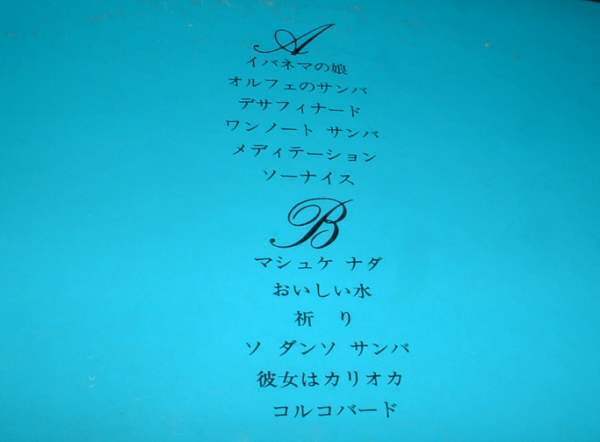 A
イパネマの娘
オルフェのサンバ
デサフィナード
ワン ノート サンバ
メディテーション
ソーナイス
B
マシュケ ナダ
おいしい水
祈り
ソ ダンソ サンバ
彼女はカリオカ
コルコバード